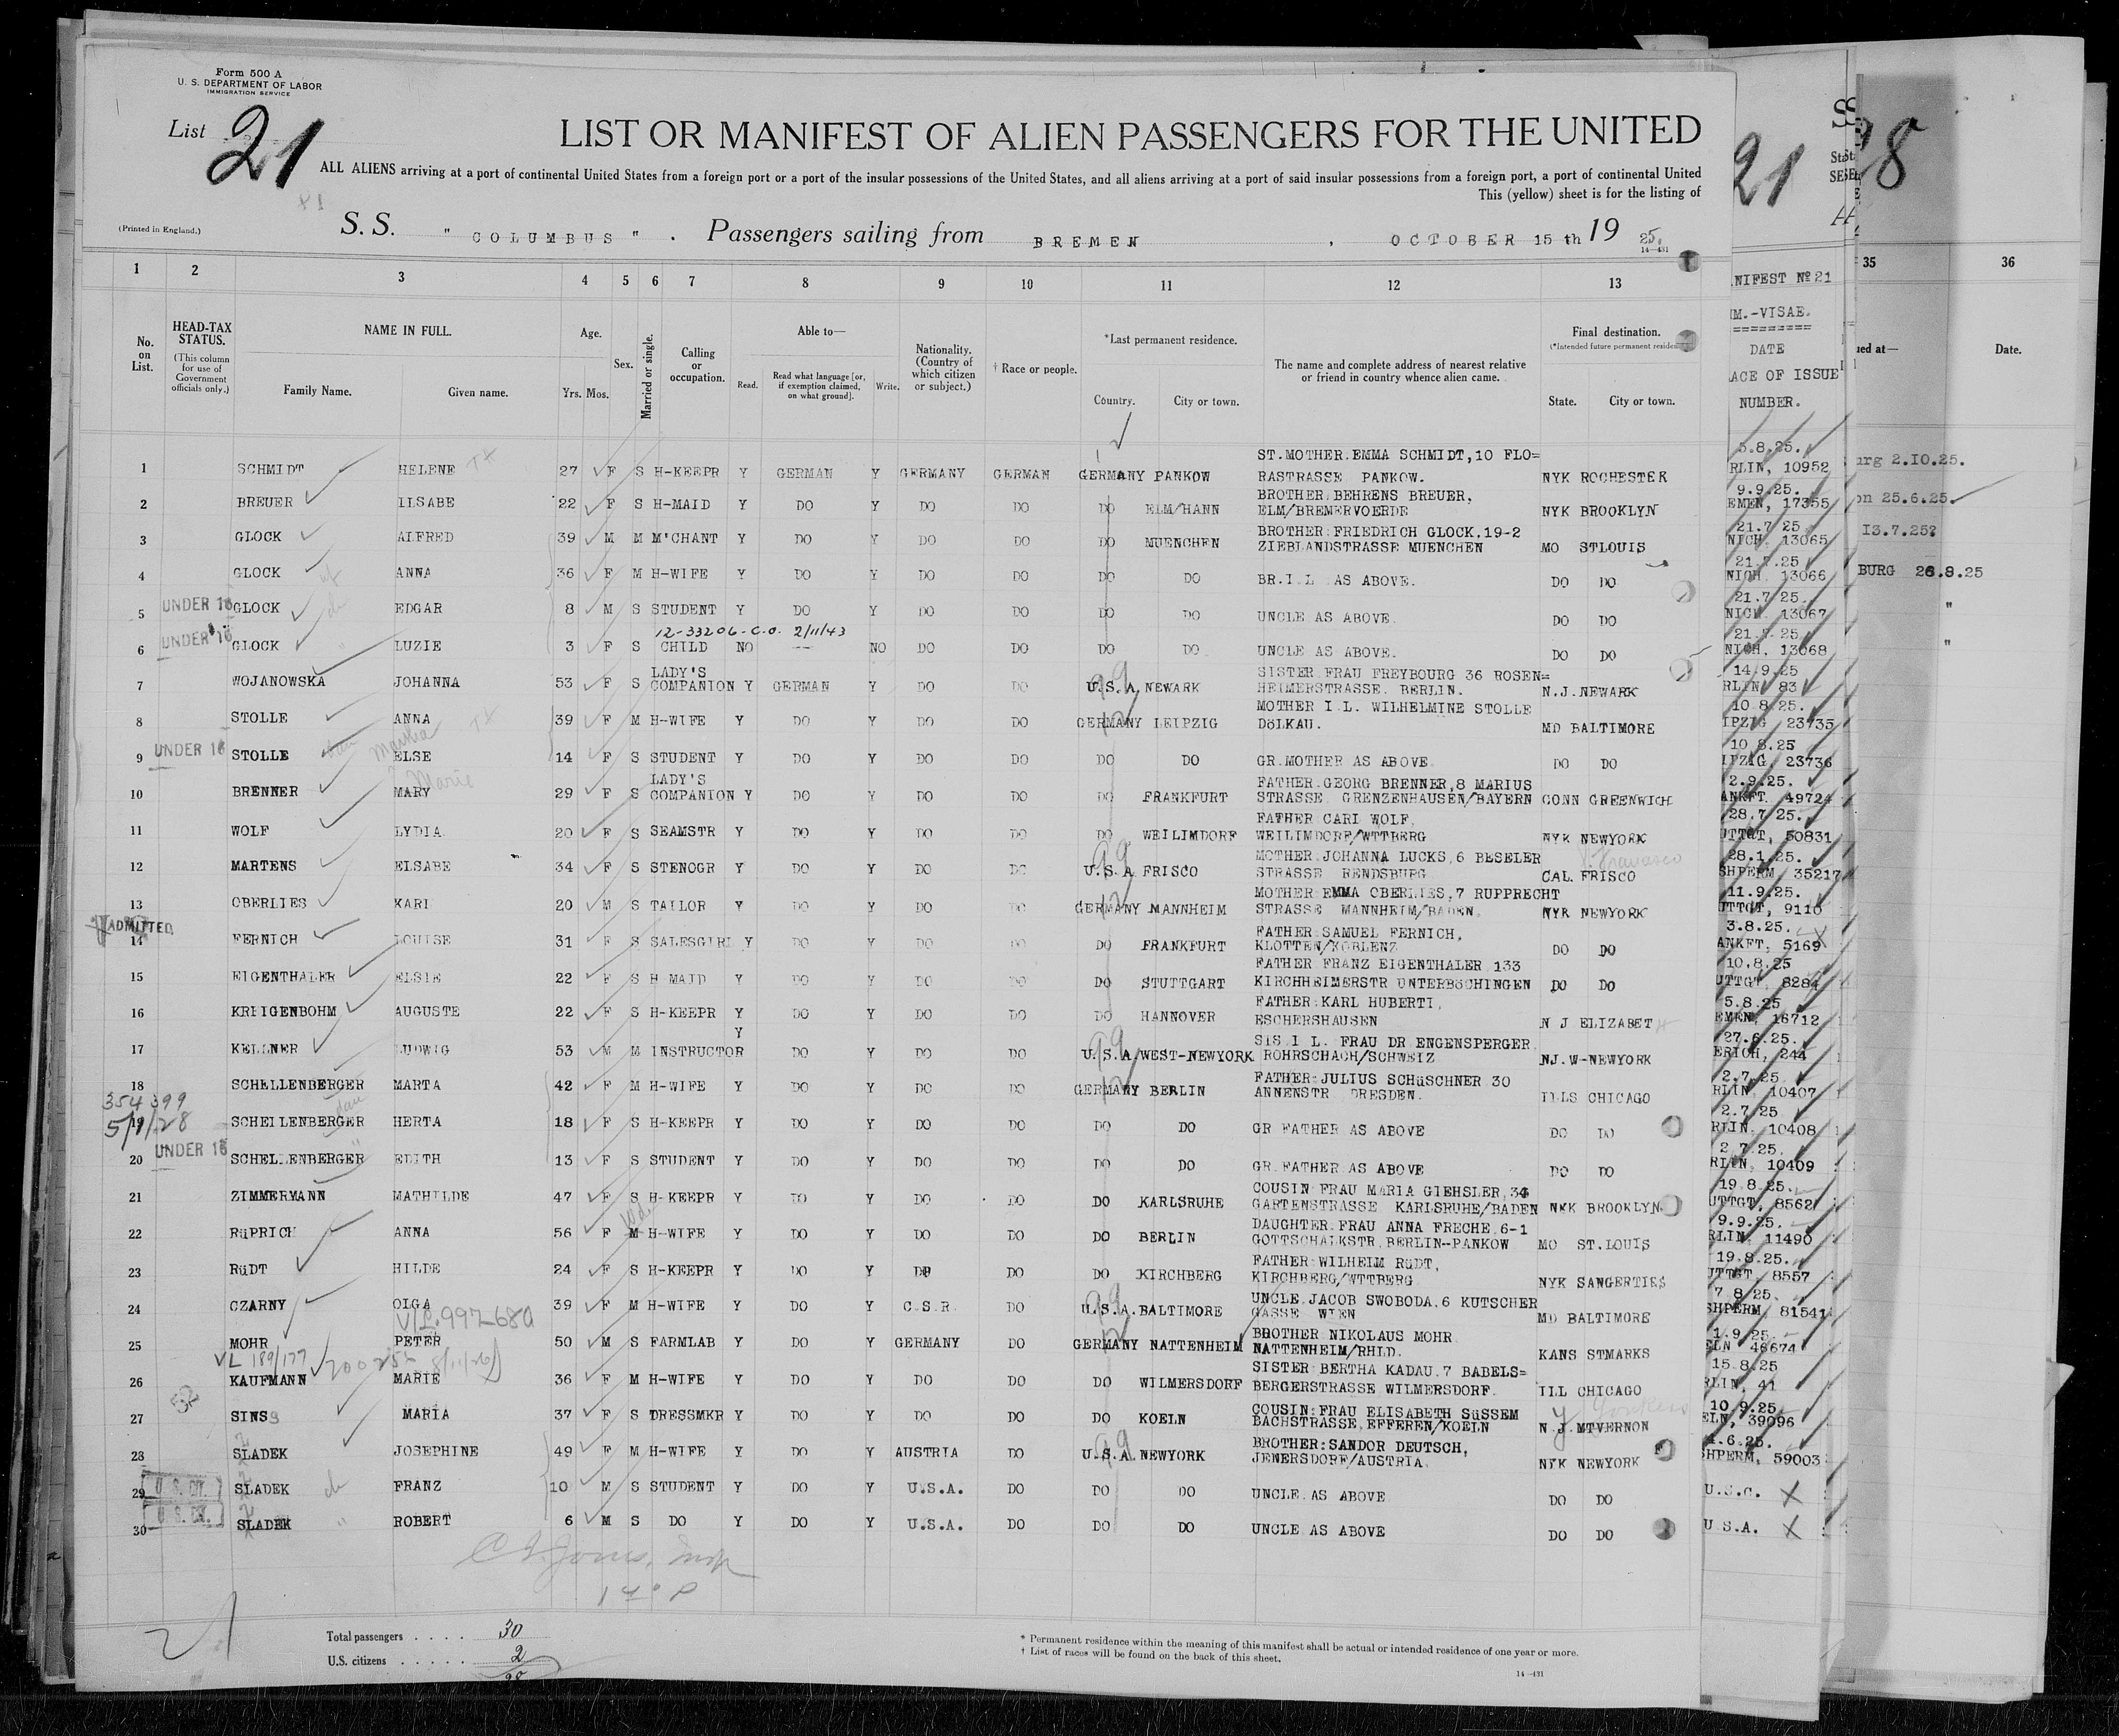 Form 500 A
U. S. DEPARTMENT OF LABOR
IMMIGRATION SERVICE
List 21
LIST OR MANIFEST OF ALIEN PASSENGERS FOR THE UNITED
ALL ALIENS arriving at a port of continental United States from a foreign port or a port of the insular possessions of the United States, and all aliens arriving at a port of said insular possessions from a foreign port, a port of continental United
This (yellow) sheet is for the listing of
(Printed in England.)
S. S. "COLUMBUS". Passengers sailing from BREMEN, OCTOBER 15 th 19 25.
14—431
1 2 3 4 5 6 7 8 9 10 11 12 13
No. on List.
HEAD-TAX STATUS.
(This column for use of Government officials only.)
NAME IN FULL.
Family Name. Given name.
Age.
Yrs. Mos.
Sex.
Married or single.
Calling or occupation.
Able to—
Read. Read what language [or, if exemption claimed, on what ground]. Write.
Nationality. (Country of which citizen or subject.)
† Race or people.
*Last permanent residence.
Country. City or town.
The name and complete address of nearest relative or friend in country whence alien came.
Final destination.
(*Intended future permanent residence)
State. City or town.
1 SCHMIDT HELENE 27 F S H-KEEPR Y GERMAN Y GERMANY GERMAN GERMANY PANKOW ST.MOTHER.EMMA SCHMIDT,10 FLO= RASTRASSE PANKOW. NYK ROCHESTER
2 BREUER ILSABE 22 F S H-MAID Y DO Y DO DO DO ELM/HANN BROTHER BEHRENS BREUER, ELM/BREMERVOERDE NYK BROOKLYN
3 GLOCK ALFRED 39 M M M'CHANT Y DO Y DO DO DO MUENCHEN BROTHER:FRIEDRICH GLOCK,19-2 ZIEBLANDSTRASSE MUENCHEN MO STLOUIS
4 GLOCK ANNA 36 F M H-WIFE Y DO Y DO DO DO DO BR.I.L. AS ABOVE. DO DO
UNDER 16
5 GLOCK EDGAR 8 M S STUDENT Y DO Y DO DO DO DO UNCLE AS ABOVE. DO DO
12-33206-C.O. 2/11/43
UNDER 16
6 GLOCK LUZIE 3 F S CHILD NO -- NO DO DO DO DO UNCLE AS ABOVE. DO DO
7 WOJANOWSKA JOHANNA 53 F S LADY'S COMPANION Y GERMAN Y DO DO U.S.A. NEWARK SISTER FRAU FREYBOURG 36 ROSEN= HEIMERSTRASSE. BERLIN. N.J.NEWARK
8 STOLLE ANNA 39 F M H-WIFE Y DO Y DO DO GERMANY LEIPZIG MOTHER I.L. WILHELMINE STOLLE DÖLKAU. MD BALTIMORE
UNDER 16
Martha
9 STOLLE ELSE 14 F S STUDENT Y DO Y DO DO DO DO GR.MOTHER AS ABOVE. DO DO
Marie
10 BRENNER MARY 29 F S LADY'S COMPANION Y DO Y DO DO DO FRANKFURT FATHER GEORG BRENNER,8 MARIUS STRASSE GRENZENHAUSEN/BAYERN CONN GREENWICH
11 WOLF LYDIA 20 F S SEAMSTR Y DO Y DO DO DO WEILIMDORF FATHER CARL WOLF, WEILIMDORF/WTTBERG NYK NEWYORK
12 MARTENS ELSABE 34 F S STENOGR Y DO Y DO DO U.S.A FRISCO MOTHER:JOHANNA LUCKS,6 BESELER STRASSE RENDSBURG CAL. FRISCO
13 OBERLIES KARL 20 M S TAILOR Y DO Y DO DO GERMANY MANNHEIM MOTHER EMMA OBERLIES,7 RUPPRECHT STRASSE MANNHEIM/BADEN. NYK NEWYORK
ADMITTED
14 FERNICH LOUISE 31 F S SALESGIRL Y DO Y DO DO DO FRANKFURT FATHER SAMUEL FERNICH, KLOTTEN/KOBLENZ DO DO
15 EIGENTHALER ELSIE 22 F S H MAID Y DO Y DO DO DO STUTTGART FATHER FRANZ EIGENTHALER 133 KIRCHHEIMERSTR UNTERBÖCHINGEN DO DO
16 KRIIGENBOHM AUGUSTE 22 F S H-KEEPR Y DO Y DO DO DO HANNOVER FATHER:KARL HUBERTI, ESCHERSHAUSEN N J ELIZABET
17 KELLNER LUDWIG 53 M M INSTRUCTOR Y DO Y DO DO U.S.A. WEST-NEWYORK SIS I L. FRAU DR ENGENSPERGER ROHRSCHACH/SCHWEIZ NJ.W-NEWYORK
18 SCHELLENBERGER MARTA 42 F M H-WIFE Y DO Y DO DO GERMANY BERLIN FATHER:JULIUS SCHÜSCHNER 30 ANNENSTR DRESDEN. ILLS CHICAGO
354399
5/9/28
19 SCHELLENBERGER HERTA 18 F S H-KEEPR Y DO Y DO DO DO DO GR FATHER AS ABOVE DO DO
UNDER 16
20 SCHELLENBERGER EDITH 13 F S STUDENT Y DO Y DO DO DO DO GR.FATHER AS ABOVE DO DO
21 ZIMMERMANN MATHILDE 47 F S H-KEEPR Y DO Y DO DO DO KARLSRUHE COUSIN FRAU MARIA GIEHSLER,34 GARTENSTRASSE KARLSRUHE/BADEN NKK BROOKLYN
22 RÜPRICH ANNA 56 F M H-WIFE Y DO Y DO DO DO BERLIN DAUGHTER FRAU ANNA FRECHE,6-1 GOTTSCHALKSTR.BERLIN--PANKOW MO ST.LOUIS
23 RÜDT HILDE 24 F S H-KEEPR Y DO Y DO DO DO KIRCHBERG FATHER WILHEIM RÜDT, KIRCHBERG/WTTBERG NYK SANGERTIES
24 CZARNY OLGA 39 F M H-WIFE Y DO Y C.S.R. DO U.S.A. BALTIMORE UNCLE JACOB SWOBODA.6 KUTSCHER GASSE WIEN MD BALTIMORE
25 MOHR PETER 50 M S FARMLAB Y DO Y GERMANY DO GERMANY NATTENHEIM BROTHER NIKOLAUS MOHR NATTENHEIM/RHLD. KANS STMARKS
VL 189/177
26 KAUFMANN MARIE 36 F M H-WIFE Y DO Y DO DO DO WILMERSDORF SISTER BERTHA KADAU.7 BABELS= BERGERSTRASSE WILMERSDORF. ILL CHICAGO
27 SINS MARIA 37 F S DRESSMKR Y DO Y DO DO DO KOELN COUSIN:FRAU ELISABETH SÜSSEM BACHSTRASSE,EFFEREN/KOELN N.J.MTVERNON
28 SLADEK JOSEPHINE 49 F M H-WIFE Y DO Y AUSTRIA DO U.S.A. NEWYORK BROTHER:SANDOR DEUTSCH, JENERSDORF/AUSTRIA. NYK NEWYORK
U. S. CIT.
29 SLADEK FRANZ 10 M S STUDENT Y DO Y U.S.A. DO DO DO UNCLE AS ABOVE DO DO
U. S. CIT.
30 SLADEK ROBERT 6 M S DO Y DO Y U.S.A. DO DO DO UNCLE AS ABOVE DO DO
Total passengers . . . . 30
U.S. citizens . . . . . 2
28
* Permanent residence within the meaning of this manifest shall be actual or intended residence of one year or more.
† List of races will be found on the back of this sheet.
14—431
21
NIFEST Nº 21
IM.-VISAE.
=========
DATE
ACE OF ISSUE
NUMBER.
5.8.25.
RLIN, 10952
9.9.25.
EMEN, 17355
21.7.25
NICH. 13065
21.7.25
NICH. 13066
21.7.25.
NICH. 13067
21.7.25
NICH, 13068
14.9.25
RLIN 83
10.8.25.
IPZIG 23735
10 8.25
IPZIG, 23736
2.9.25.
ANKFT. 49724
28.7.25.
UTTGT, 50831
28.1.25.
SHPERM, 35217
11.9.25.
UTTGT, 9110
3.8.25.
ANKFT. 5169
10.8.25
UTTGT, 8284
5.8.25
EMEN, 16712
27.6.25.
ERICH, 244
2.7.25
RLIN, 10407
2.7.25
RLIN, 10408
2.7.25.
RLIN, 10409
19.8.25.
UTTGT, 8562
9.9.25.
RLIN, 11490
19.8.25.
UTTGT, 8557
7.8.25.
SHPERM, 81541
1.9.25
ELN 46674
15.8.25
RLIN, 41
10.9.25
ELN, 39096
4.6.25.
SHPERM, 59003
U.S.C. X
U S.A. X
28
35 36
ued at— Date.
urg 2.10.25.
on 25.6.25.
13.7.25
BURG 26.8.25
"
"